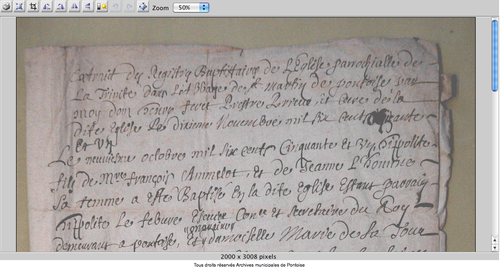 Zoom 50%
Extrait des Registres Baptistaires de L'Eglise parrochialle de
La Trinité dans Lenclos de St Martin de pontoise par
moy dom prestre et curé de la
dite Eglise Le dixieme Novembre mil six cent
Et Un
Le neuvieme octobre mil six cents Cinquante et Un hippolite
fils de Mre françois Ammelot, et de Jeanne
sa femme a esté Baptisé En la dite Eglise Estant parrain
hippolite Le febure Escuier Conr et secretaire du Roy
demeurant a pontoise, et damoiselle Marie de la Tour
2000 x 3008 pixels
Tous droits réservés Archives municipales de Pontoise